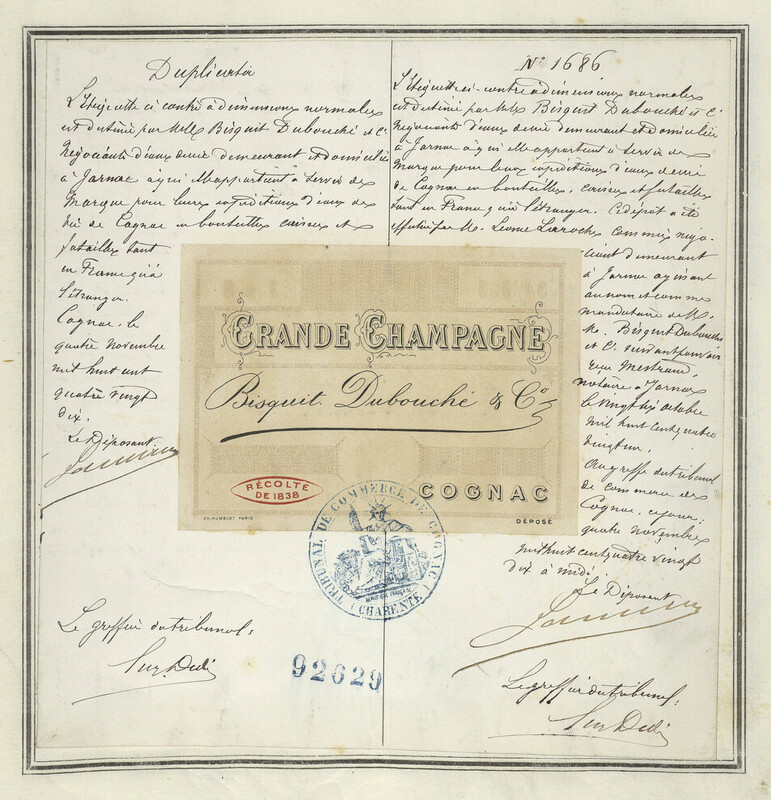 Duplicata
L'étiquette ci contre a dimensions normales
est destinée par MM. Bisquit Dubouché et Cie
Négociants d'eaux de vie demeurant et domiciliés
à Jarnac à qui elle appartient à servir de
Marque pour leurs expéditions d'eaux de
vie de Cognac en bouteilles caisses et
futailles tant
en France qu'à
l'étranger.
Cognac, le
quatre novembre
mil huit cent
quatre vingt
dix.
Le Déposant
Le greffier du tribunal:
No 1686
L'étiquette ci-contre a dimensions normales
est destinée par MM. Bisquit Dubouché et Cie
Négociants d'eaux de vie demeurant et domiciliés
à Jarnac à qui elle appartient à servir de
Marque pour leurs expéditions d'eaux de vie
de Cognac en bouteilles, caisses et futailles
tant en France qu'à l'étranger. Ce dépôt a été
effectué par M. Leonce Laroche commis négo-
ciant demeurant
à Jarnac agissant
au nom et comme
mandataire de M.
M. Bisquit Dubouché
et Cie suivant pouvoir
reçu Mestreau,
notaire à Jarnac
le vingt six octobre
mil huit cent quatre
vingt un.
Au greffe du tribunal
de commerce de
Cognac, ce jour:
quatre novembre
mil huit cent quatre vingt
dix à midi
Le Déposant
Le greffier du tribunal:
GRANDE CHAMPAGNE
Bisquit Dubouché & Co
RÉCOLTE
DE 1838
COGNAC
CH. HUMBLOT PARIS
DÉPOSÉ
TRIBUNAL DE COMMERCE DE COGNAC
(CHARENTE)
92629